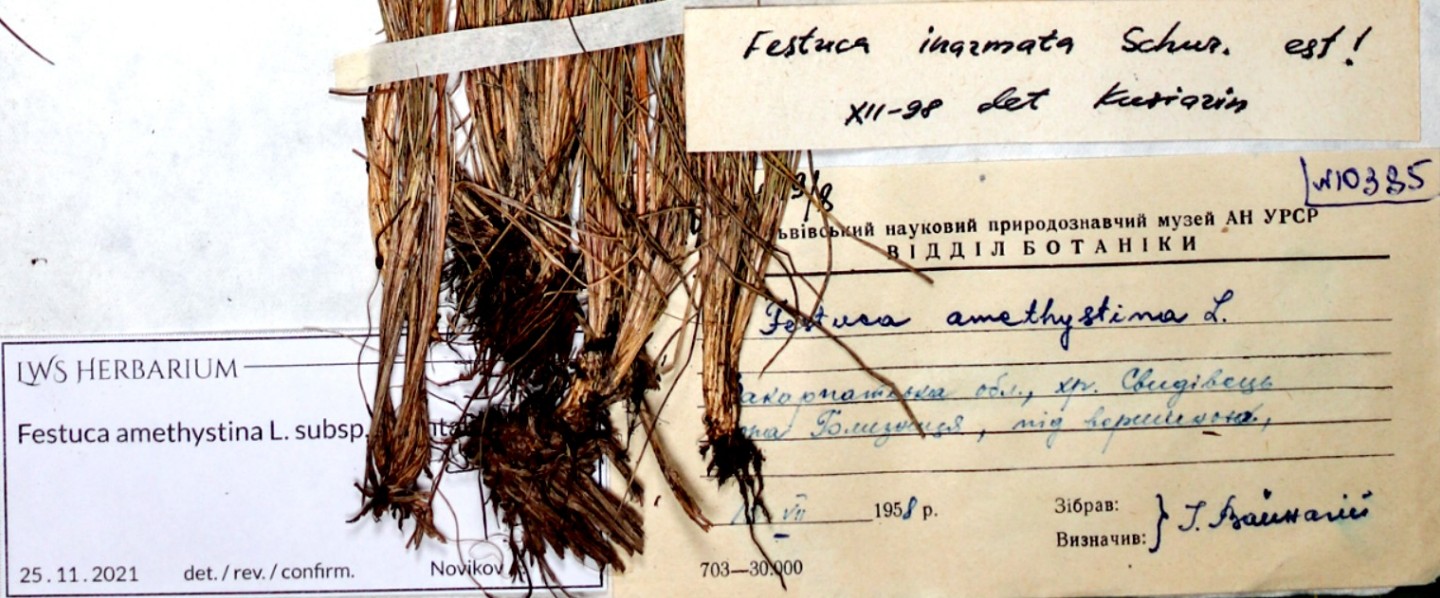 Festuca inarmata Schur. est!
XII-98 det Kuziarin
N10335
9/8
ьвівський науковий природознавчий музей АН УРСР
ВІДДІЛ БОТАНІКИ
Festuca amethystina L.
акарпатська обл., хр. Свидівець
Близниця, під вершиною,
VII 1958 р.
Зібрав:
Визначив:
703—30.000
LWS HERBARIUM
Festuca amethystina L. subsp.
25.11.2021 det./rev./confirm. Novikov